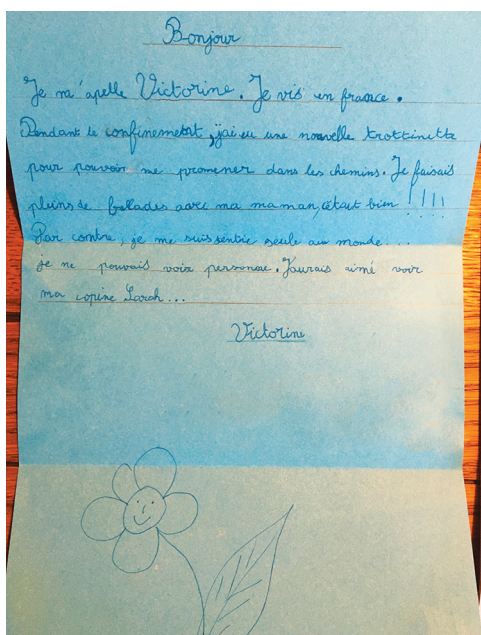 Bonjour
Je m'apelle Victorine. Je vis en france.
Pendant le confinement, j'ai eu une nouvelle trottinette
pour pouvoir me promener dans les chemins. Je faisais
pleins de ballades avec ma maman, c'était bien !!!!
Par contre, je me suis sentie seule au monde...
je ne pouvais voir personne. J'aurais aimé voir
ma copine Sarah...
Victorine